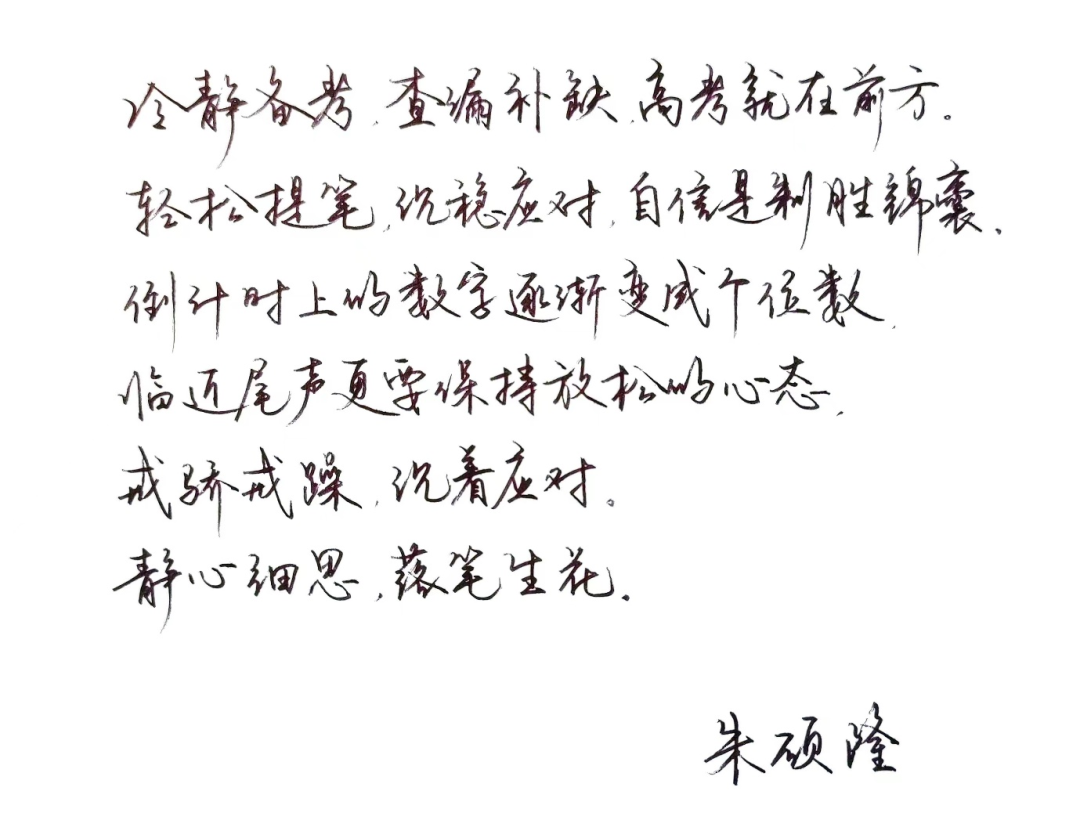 冷静备考,查漏补缺,高考就在前方。
轻松提笔,沉稳应对,自信是制胜锦囊.
倒计时上的数字逐渐变成个位数,
临近尾声更要保持放松的心态,
戒骄戒躁,沉着应对。
静心细思,落笔生花.
朱硕隆